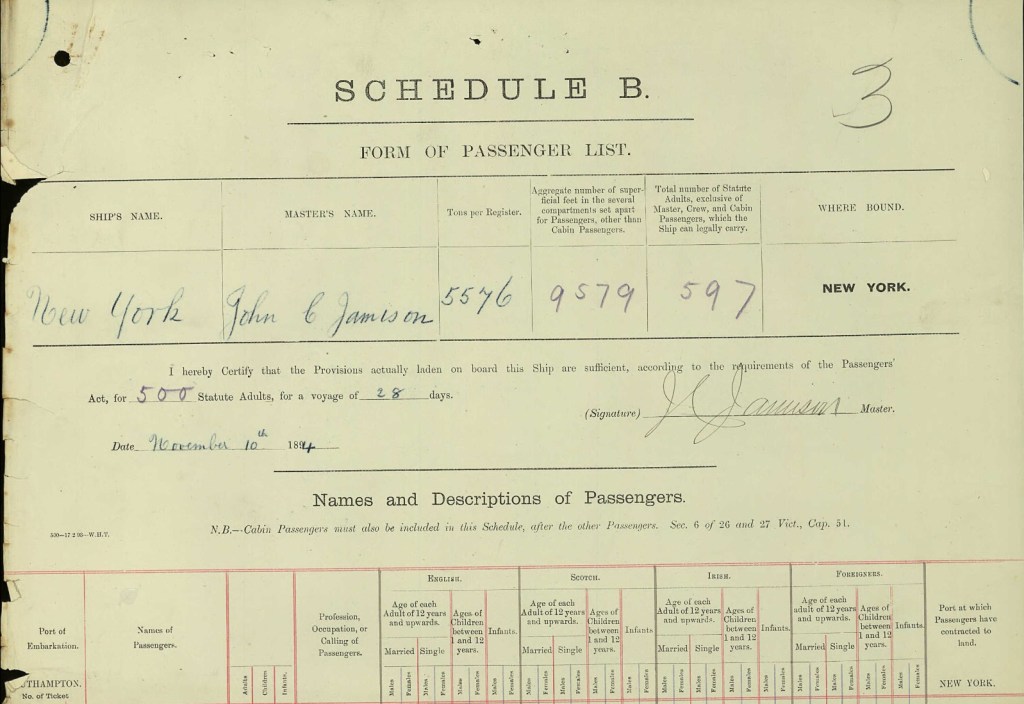 3
SCHEDULE B.
FORM OF PASSENGER LIST.
SHIP'S NAME.
MASTER'S NAME.
Tons per Register.
Aggregate number of super-
ficial feet in the several
compartments set apart
for Passengers, other than
Cabin Passengers.
Total number of Statute
Adults, exclusive of
Master, Crew, and Cabin
Passengers, which the
Ship can legally carry.
WHERE BOUND.
New York
John C Jamison
5576
9579
597
NEW YORK.
I hereby Certify that the Provisions actually laden on board this Ship are sufficient, according to the requirements of the Passengers'
Act, for 500 Statute Adults, for a voyage of 28 days.
(Signature) J C Jamison Master.
Date November 10th 1894
Names and Descriptions of Passengers.
N.B.—Cabin Passengers must also be included in this Schedule, after the other Passengers. Sec. 6 of 26 and 27 Vict., Cap. 51.
ENGLISH.
SCOTCH.
IRISH.
FOREIGNERS.
Port of
Embarkation.
Names of
Passengers.
Profession,
Occupation, or
Calling of
Passengers.
Age of each
Adult of 12 years
and upwards.
Ages of
Children
between
1 and 12
years.
Infants.
Age of each
Adult of 12 years
and upwards.
Ages of
Children
between
1 and 12
years.
Infants.
Age of each
Adult of 12 years
and upwards.
Ages of
Children
between
1 and 12
years.
Infants.
Age of each
Adult of 12 years
and upwards.
Ages of
Children
between
1 and 12
years.
Infants.
Port at which
Passengers have
contracted to
land.
Married Single
Married Single
Married Single
Married Single
THAMPTON.
No. of Ticket
Adults
Children
Infants.
Males Females Males Females Males Females Males Females
Males Females Males Females Males Females Males Females
Males Females Males Females Males Females Males Females
Males Females Males Females Males Females Males Females
NEW YORK.